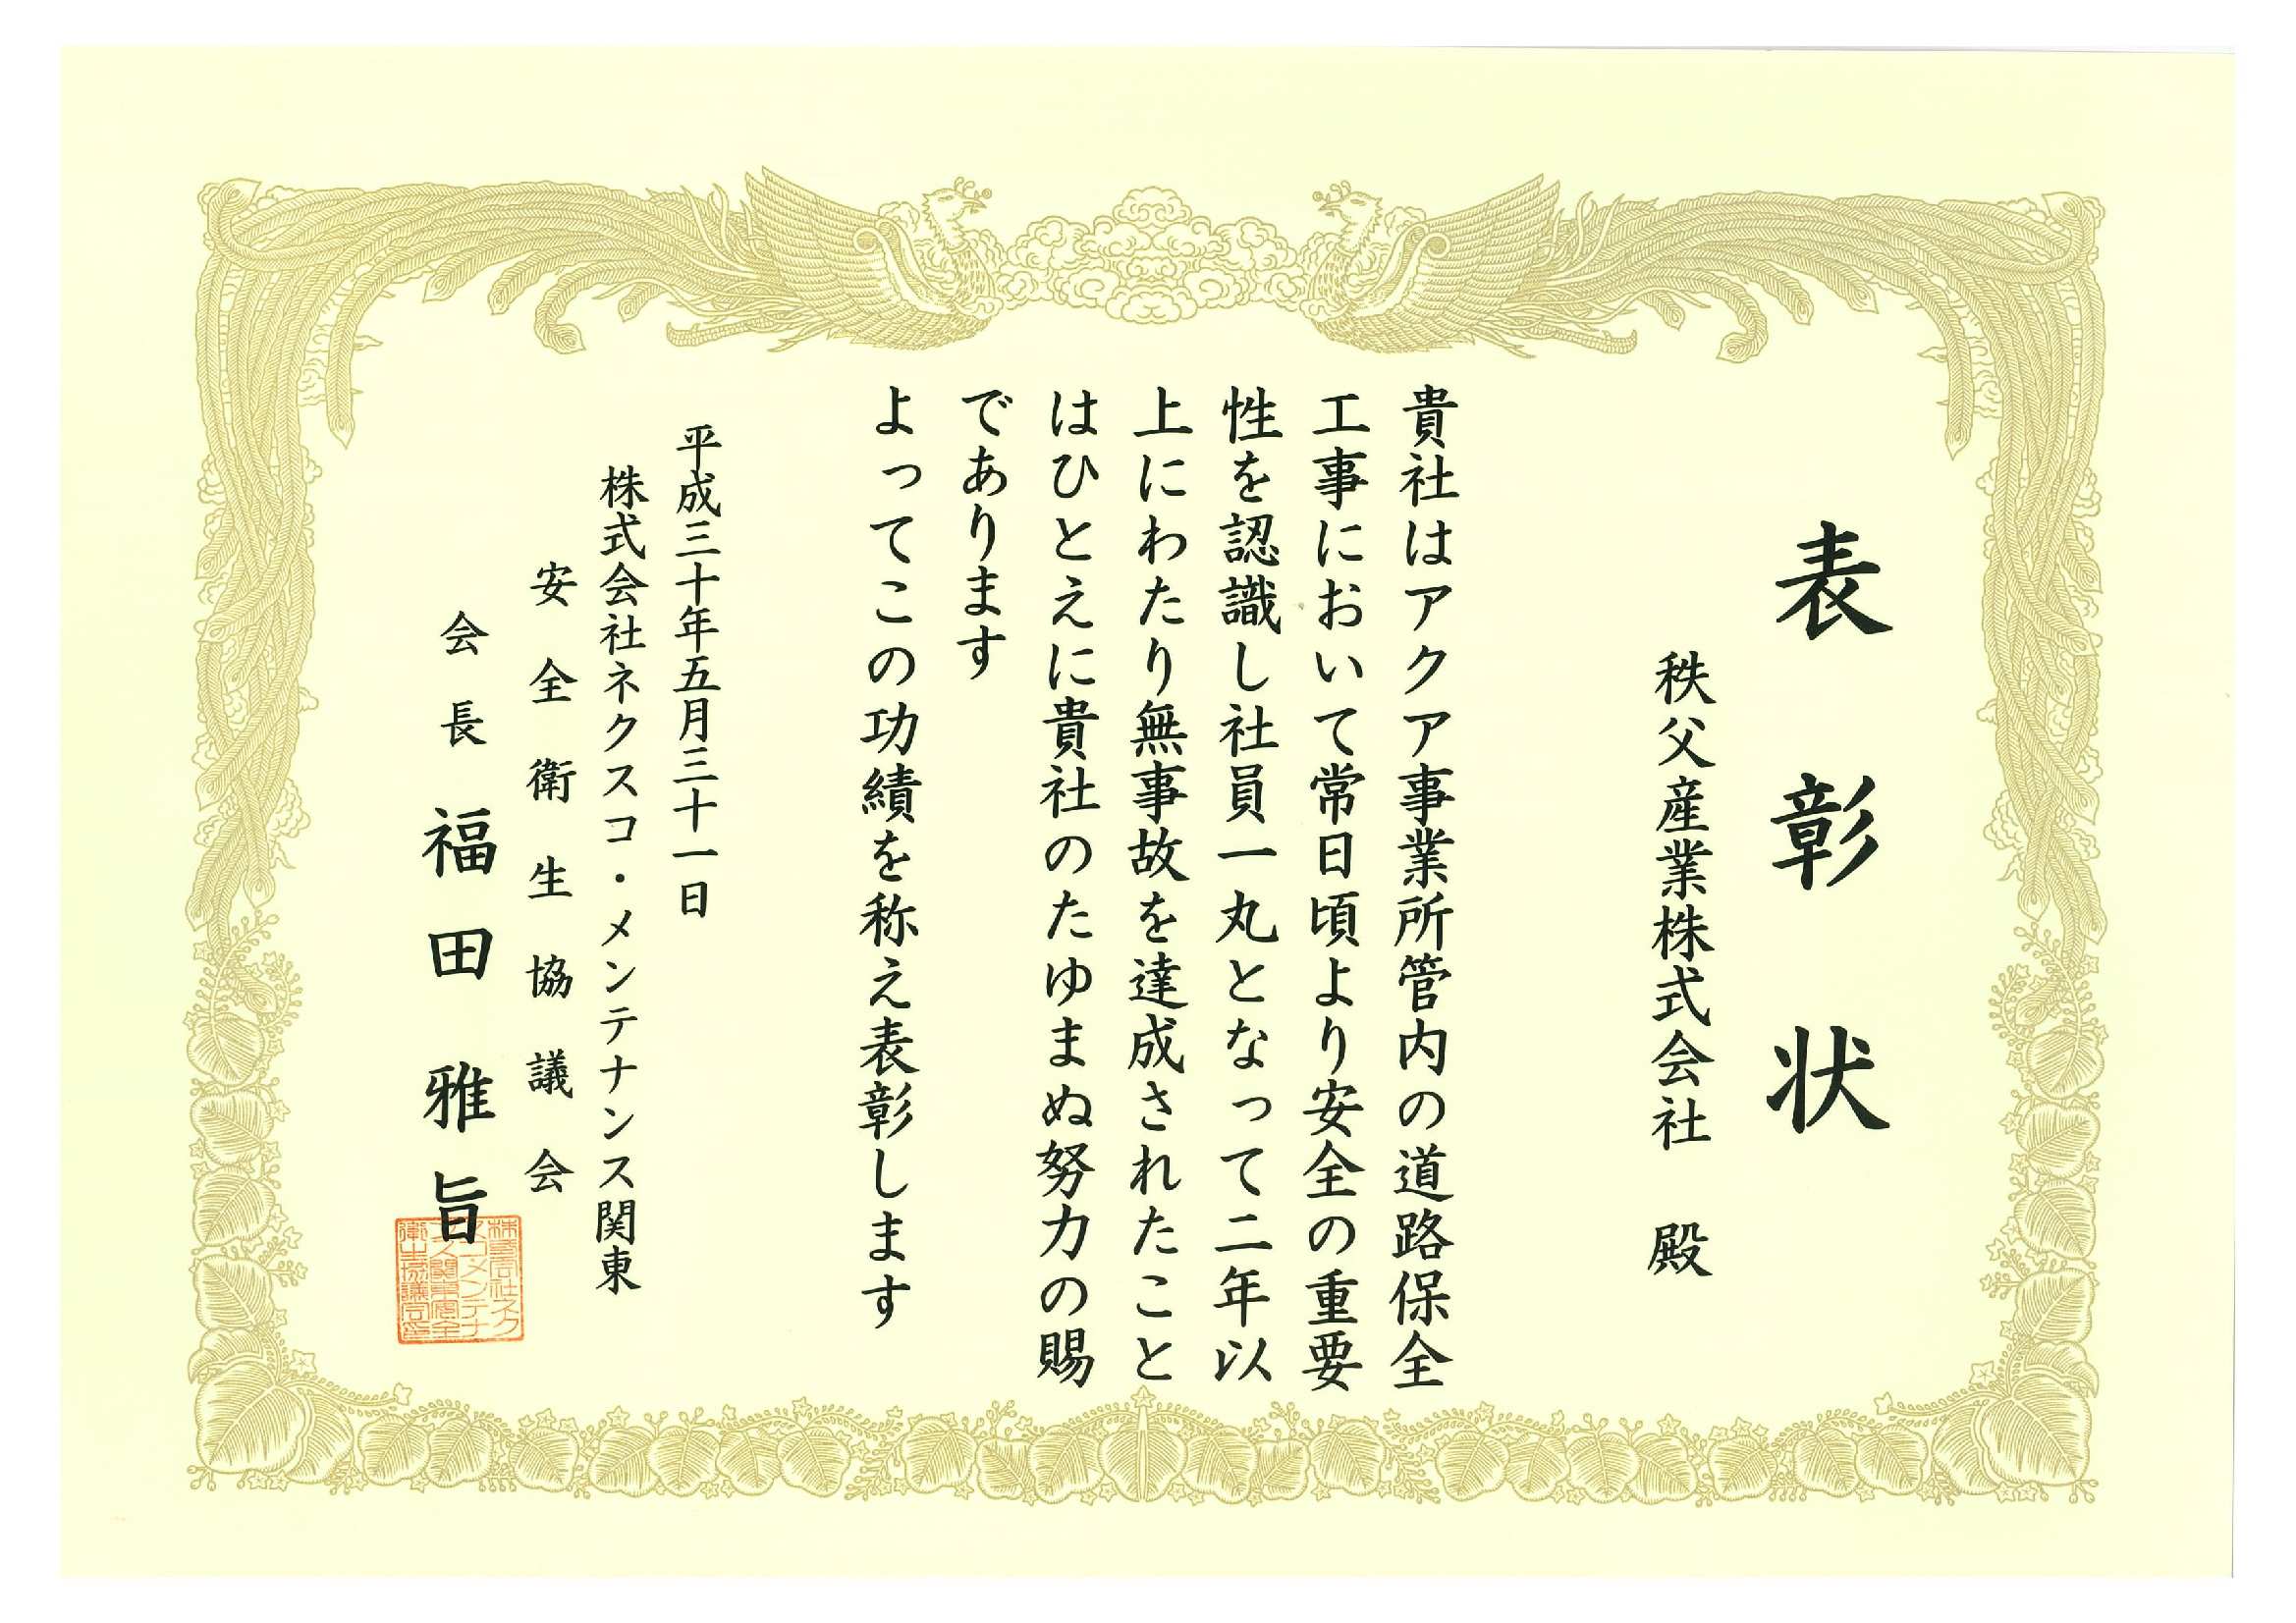 表彰状
秩父産業株式会社 殿
貴社はアクア事業所管内の道路保全
工事において常日頃より安全の重要
性を認識し社員一丸となって二年以
上にわたり無事故を達成されたこと
はひとえに貴社のたゆまぬ努力の賜
であります
よってこの功績を称え表彰します
平成三十年五月三十一日
株式会社ネクスコ・メンテナンス関東
安全衛生協議会
会長 福田雅旨